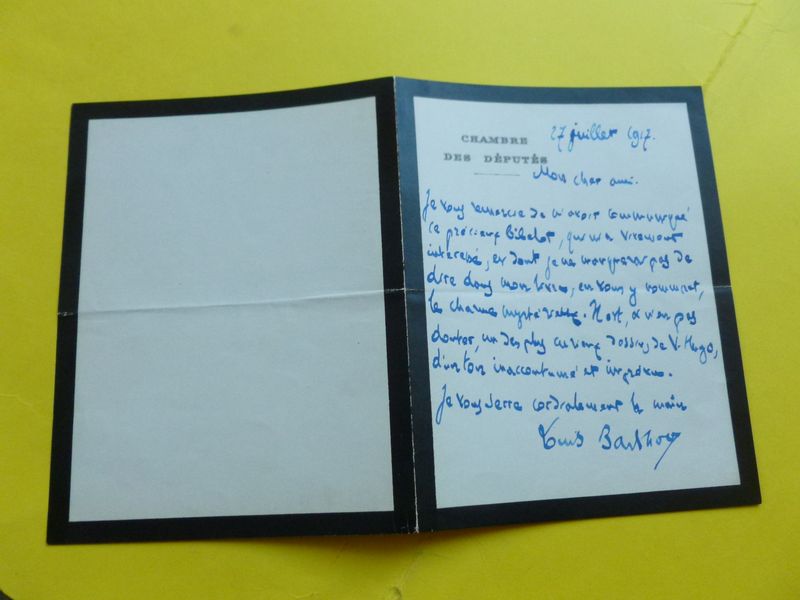 CHAMBRE
DES DÉPUTÉS
27 juillet 1917.
Mon cher ami.
Je vous remercie de m'avoir communiqué
ce précieux Bibelot, qui m'a vivement
intéressé, et dont je ne manquerai pas de
dire dans mon livre, en vous y nommant,
le charme mystérieux. Il est, à n'en pas
douter, un des plus curieux dessins de V. Hugo,
d'un ton inaccoutumé et imprévu.
Je vous serre cordialement la main
Louis Barthou